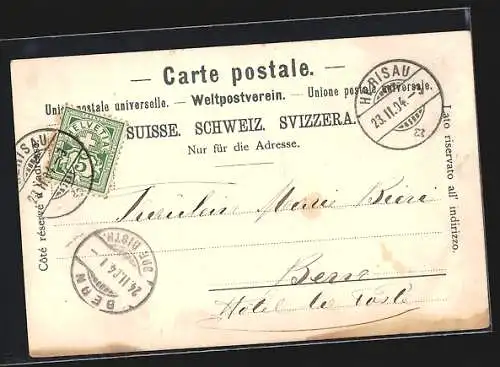 — Carte postale. —
Union postale universelle. — Weltpostverein. — Unione postale universale.
SUISSE. SCHWEIZ. SVIZZERA.
Nur für die Adresse.
Côté réservé à l'adresse.
Lato riservato all' indirizzo.
HELVETIA
5
HERISAU
23.II.04.
HERISAU
23.II.
BERN
24.II.04.
Fräulein Marie
Bern
Hotel de